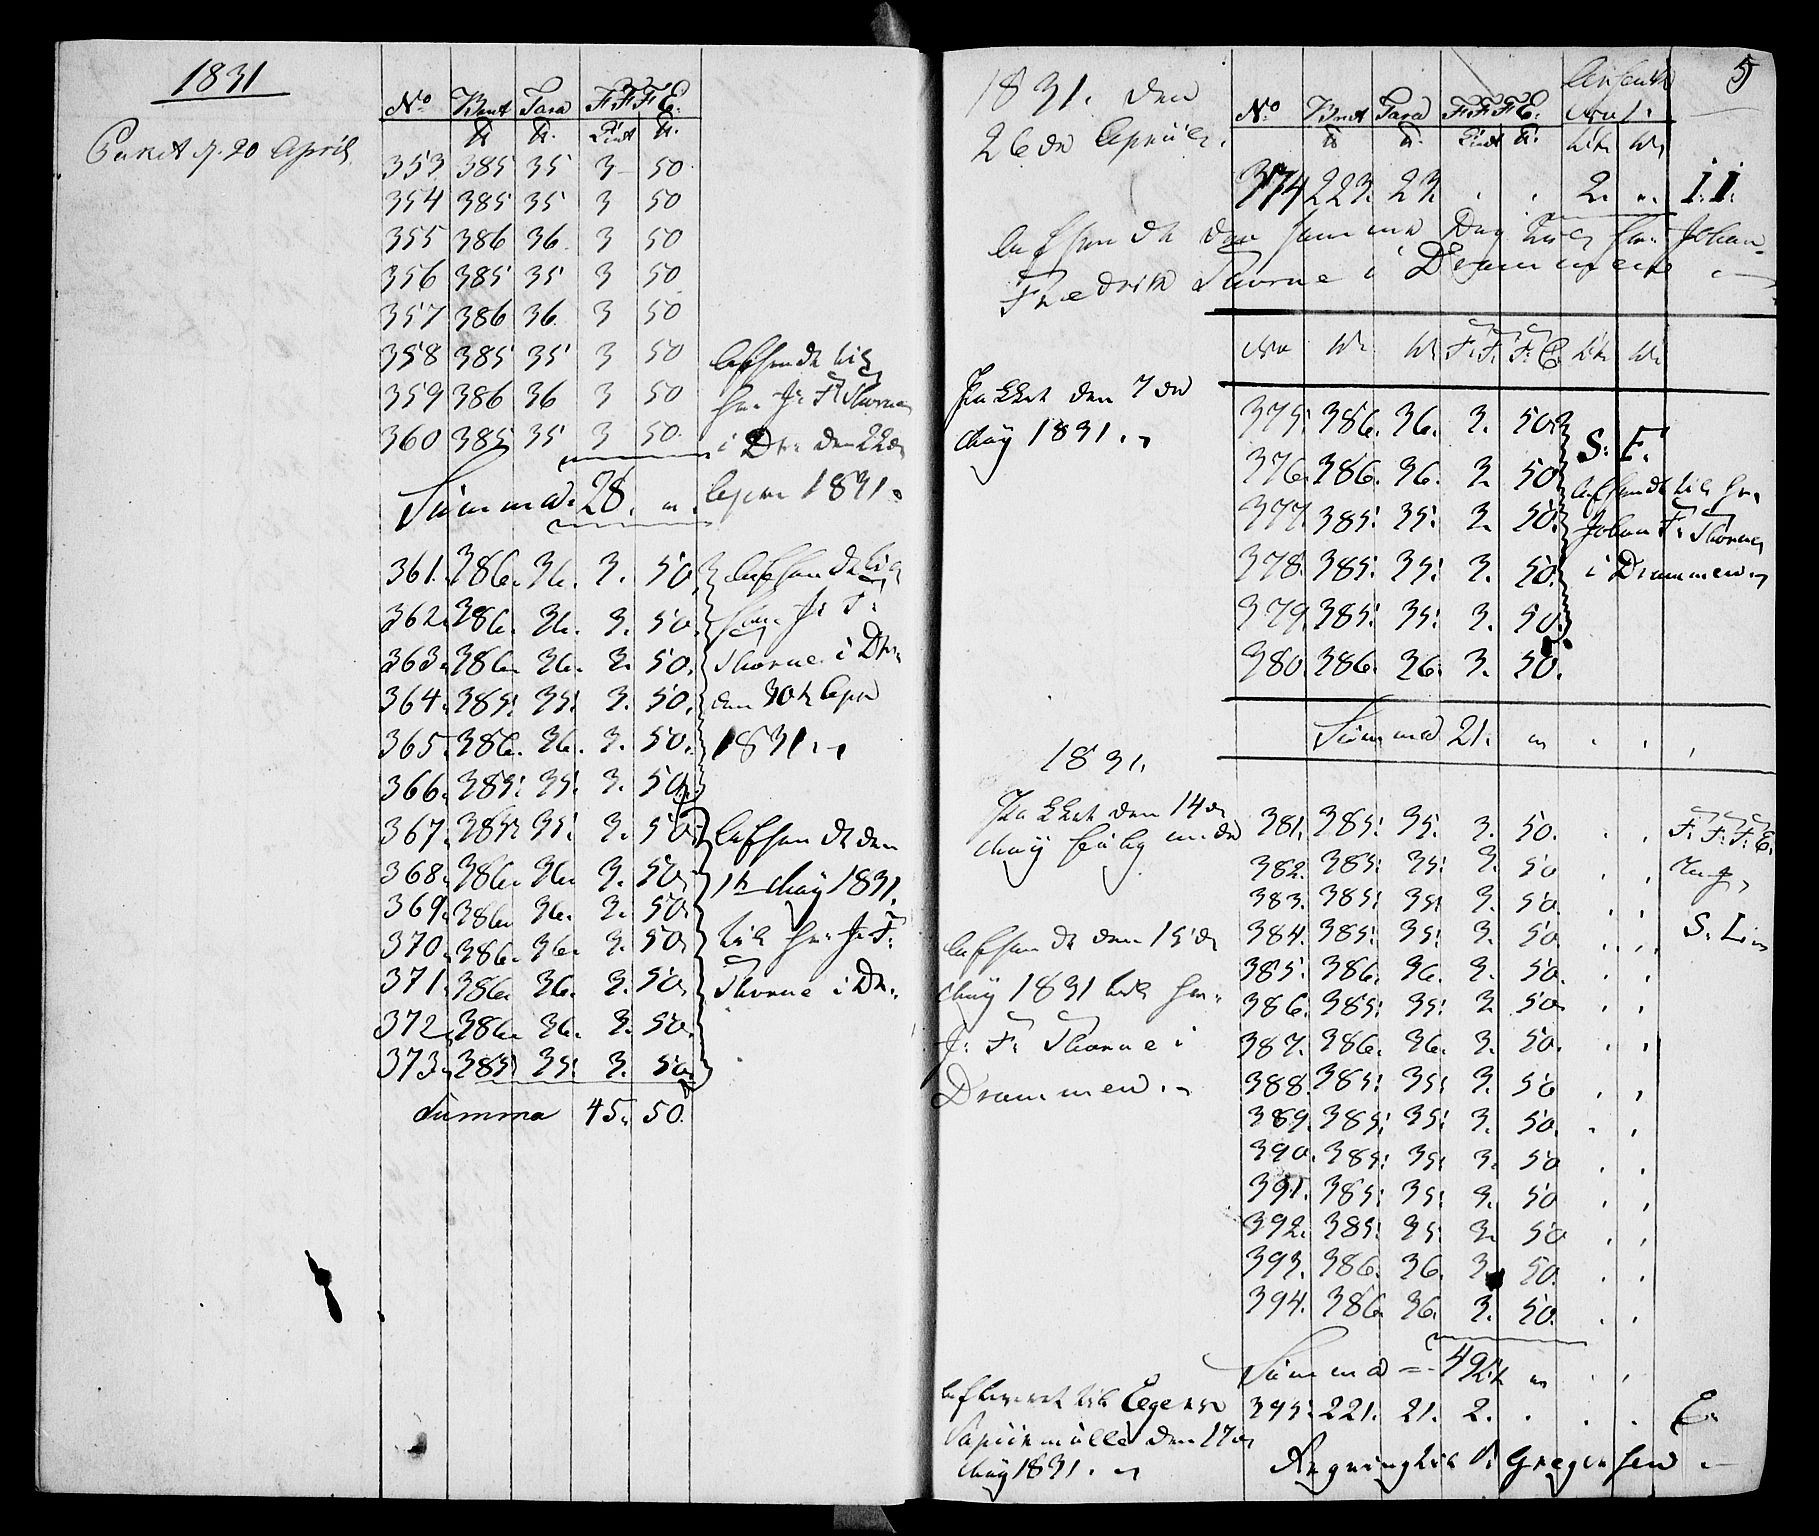 1831
Paket d. 20 April
No Brut Tara F F F E.
353 385 35 3 50
354 385 35 3 50
355 386 36 3 50
356 385 35 3 50
357 386 36 3 50
358 385 35 3 50 Afsendt til
359 386 36 3 50 Hr. J: F: Thorne
360 385 35 3 50 i Dr: den 22de
Summa. 28. " Apr 1831.
361. 386. 36. 3. 50. Afsendt til
362. 386. 36. 3. 50. Herr J: F:
363. 386. 36. 3. 50. Thorne i Dr:
364. 385. 35. 3. 50. den 30te Apr
365. 386. 36. 3. 50. 1831.
366. 385. 35. 3. 50.
367. 385. 35. 3. 50. Afsendt den
368. 386. 36. 3. 50. 1te May 1831.
369. 386. 36. 3. 50.
370. 386. 36. 3. 50. til Hr: J: F:
371. 386. 36. 3. 50. Thorne i Dr.
372. 386. 36. 3. 50.
373. 385. 35. 3. 50.
Summa 45. 50.
5
1831. den
26de April.
No Brut Tara F. F. F. E.
374 223. 23. . . 2. ". i: i.
Afsendt den samme Dag til Hr: Johan
Fredrik Thorne i Drammen
F. F. F. E.
Pakket den 7de
May 1831.
375. 386. 36. 3. 50.
S: F.
376. 386. 36. 3. 50. Afsendt til Hr.
377. 385. 35. 3. 50. Johan F: Thorne
378. 385. 35. 3. 50. i Drammen
379. 385. 35. 3. 50.
380. 386. 36. 3. 50.
Summa 21. "
1831.
Pakket den 14de
May
381. 385. 35. 3. 50. . . F: F: F: E.
382. 385. 35. 3. 50 . .
383. 385. 35. 3. 50. . .
384. 385. 35. 3. 50. . . S:
385. 386. 36. 3. 50. . .
386. 385. 35. 3. 50. . .
387. 386. 36. 3. 50. . .
388. 385. 35. 3. 50 . .
389. 385. 35. 3. 50. . .
390. 385. 35. 3. 50 . .
391. 385. 35. 3. 50 . .
392. 385. 35. 3. 50 . .
393. 386. 36. 3. 50. . .
394. 386. 36. 3. 50. . .
Afsendt den 15de
May 1831 til Hr.
J: F: Thorne i
Drammen.
Summa = 49 "
395. 221. 21. 2. . . . E.
Afleveret til Egers
Papiirmølle den 17de
May 1831.
Regning til Gregersen